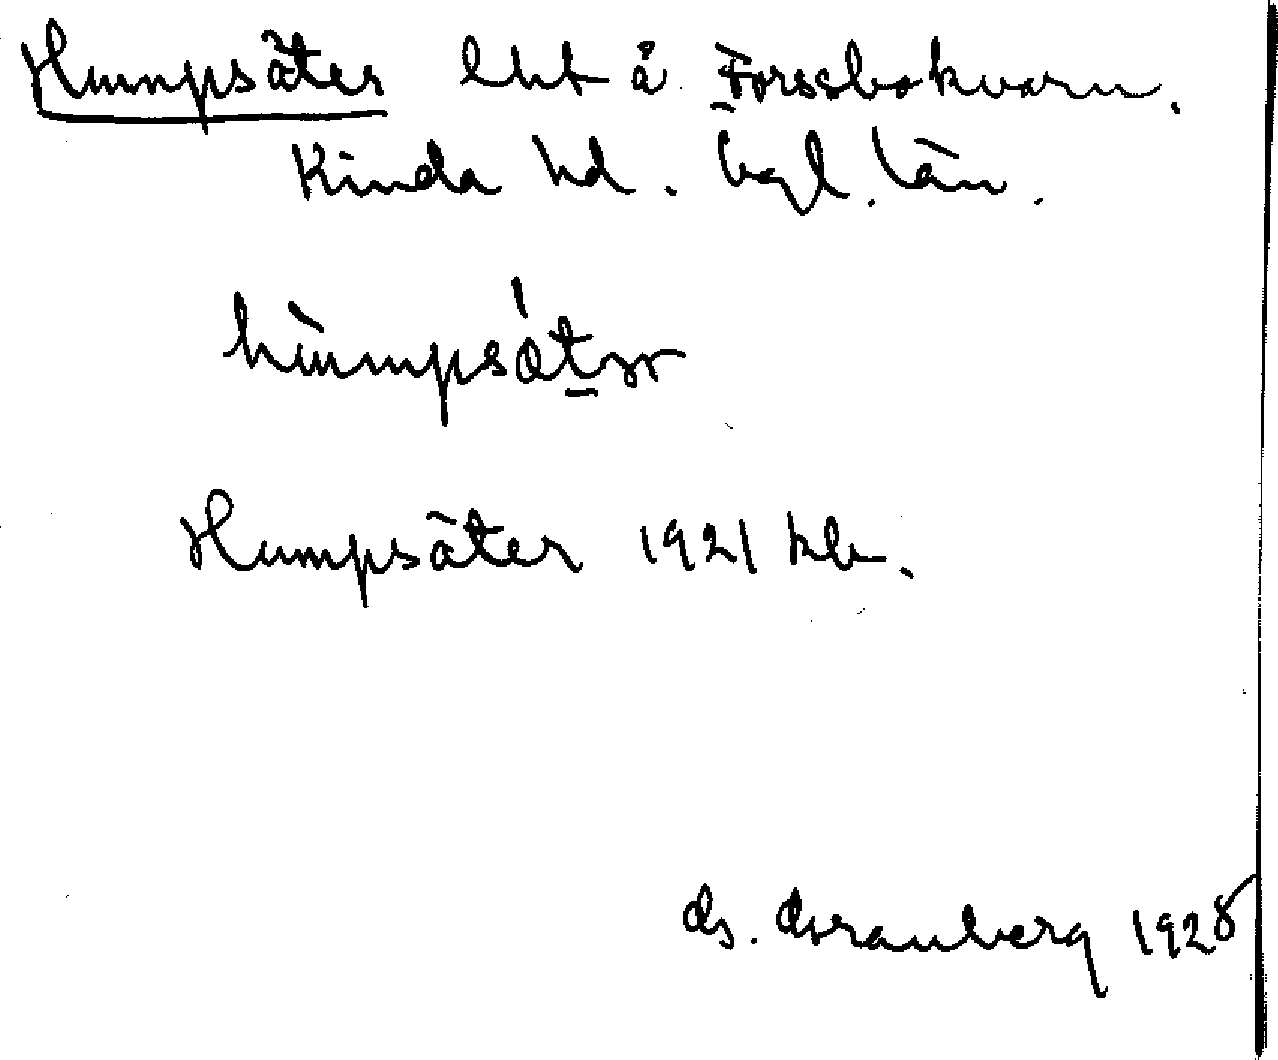 Humpsäter lht å Forssbokvarn.
Kinda hd. Ögl. län.
Humpsäter 1921 kb.
G. Granberg 1928